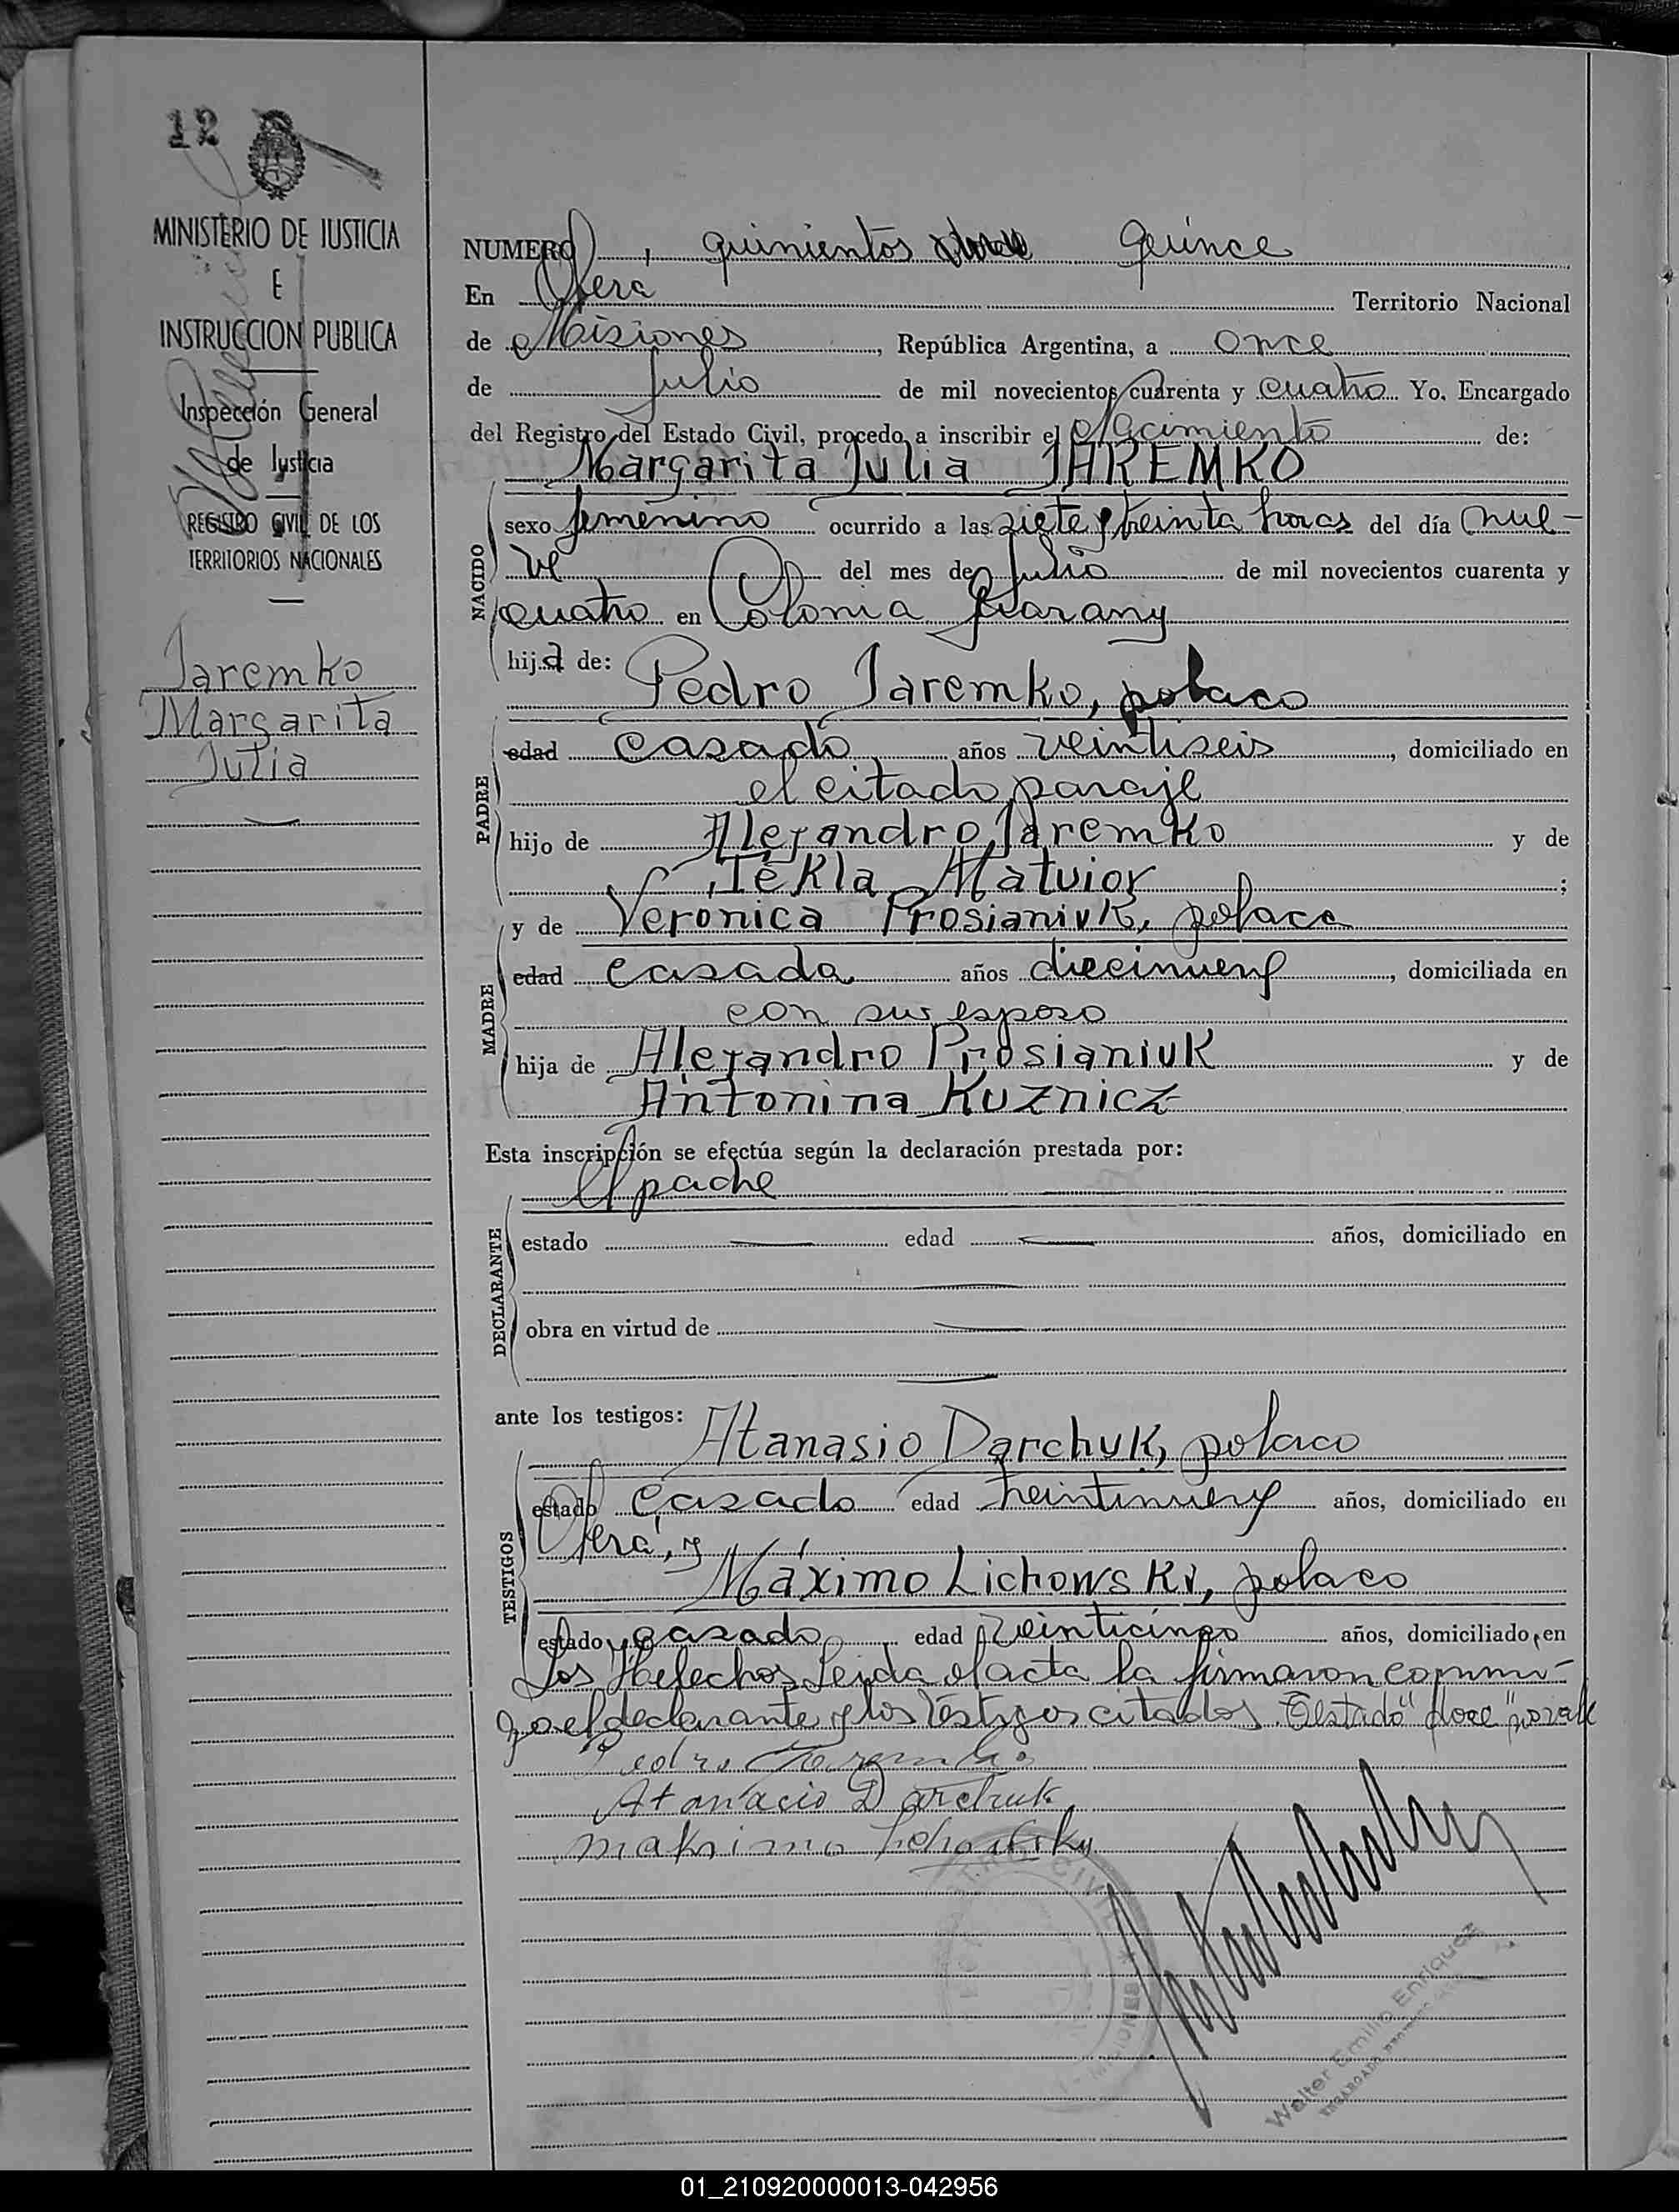 12
MINISTERIO DE JUSTICIA
E
INSTRUCCION PUBLICA
Inspección General
de Justicia
REGISTRO CIVIL DE LOS
TERRITORIOS NACIONALES
Jaremko
Margarita
Julia
NUMERO quinientos doce quince
En Oberá Territorio Nacional
de Misiones, República Argentina, a once
de Julio de mil novecientos cuarenta y cuatro Yo, Encargado
del Registro del Estado Civil, procedo a inscribir el Nacimiento de:
Margarita Julia JAREMKO
NACIDO
sexo femenino ocurrido a las siete y treinta horas del día nue-
ve del mes de Julio de mil novecientos cuarenta y
cuatro en Colonia Guarany
hija de:
Pedro Jaremko, polaco
PADRE
edad casado años veintiseis, domiciliado en
el citado paraje
hijo de Alejandro Jaremko y de
Tekla Matvior;
y de Veronica Prosianiuk, polaca
MADRE
edad casada años diecinueve, domiciliada en
con su esposo
hija de Alejandro Prosianiuk y de
Antonina Kuznicz
Esta inscripción se efectúa según la declaración prestada por:
el padre
DECLARANTE
estado edad años, domiciliado en
obra en virtud de
ante los testigos:
Atanasio Darchuk, polaco
TESTIGOS
estado casado edad treintinueve años, domiciliado en
Oberá, y
Máximo Lichowski, polaco
estado casado edad veinticinco años, domiciliado en
Los Helechos. Leida el acta la firmaron conmi-
go el declarante y los testigos citados. Testado "doce" no vale
Pedro Jaremko
Atanacio Darchuk
Maksimo
REGISTRO CIVIL
MISIONES
Walter Emilio Enriquez
01_210920000013-042956